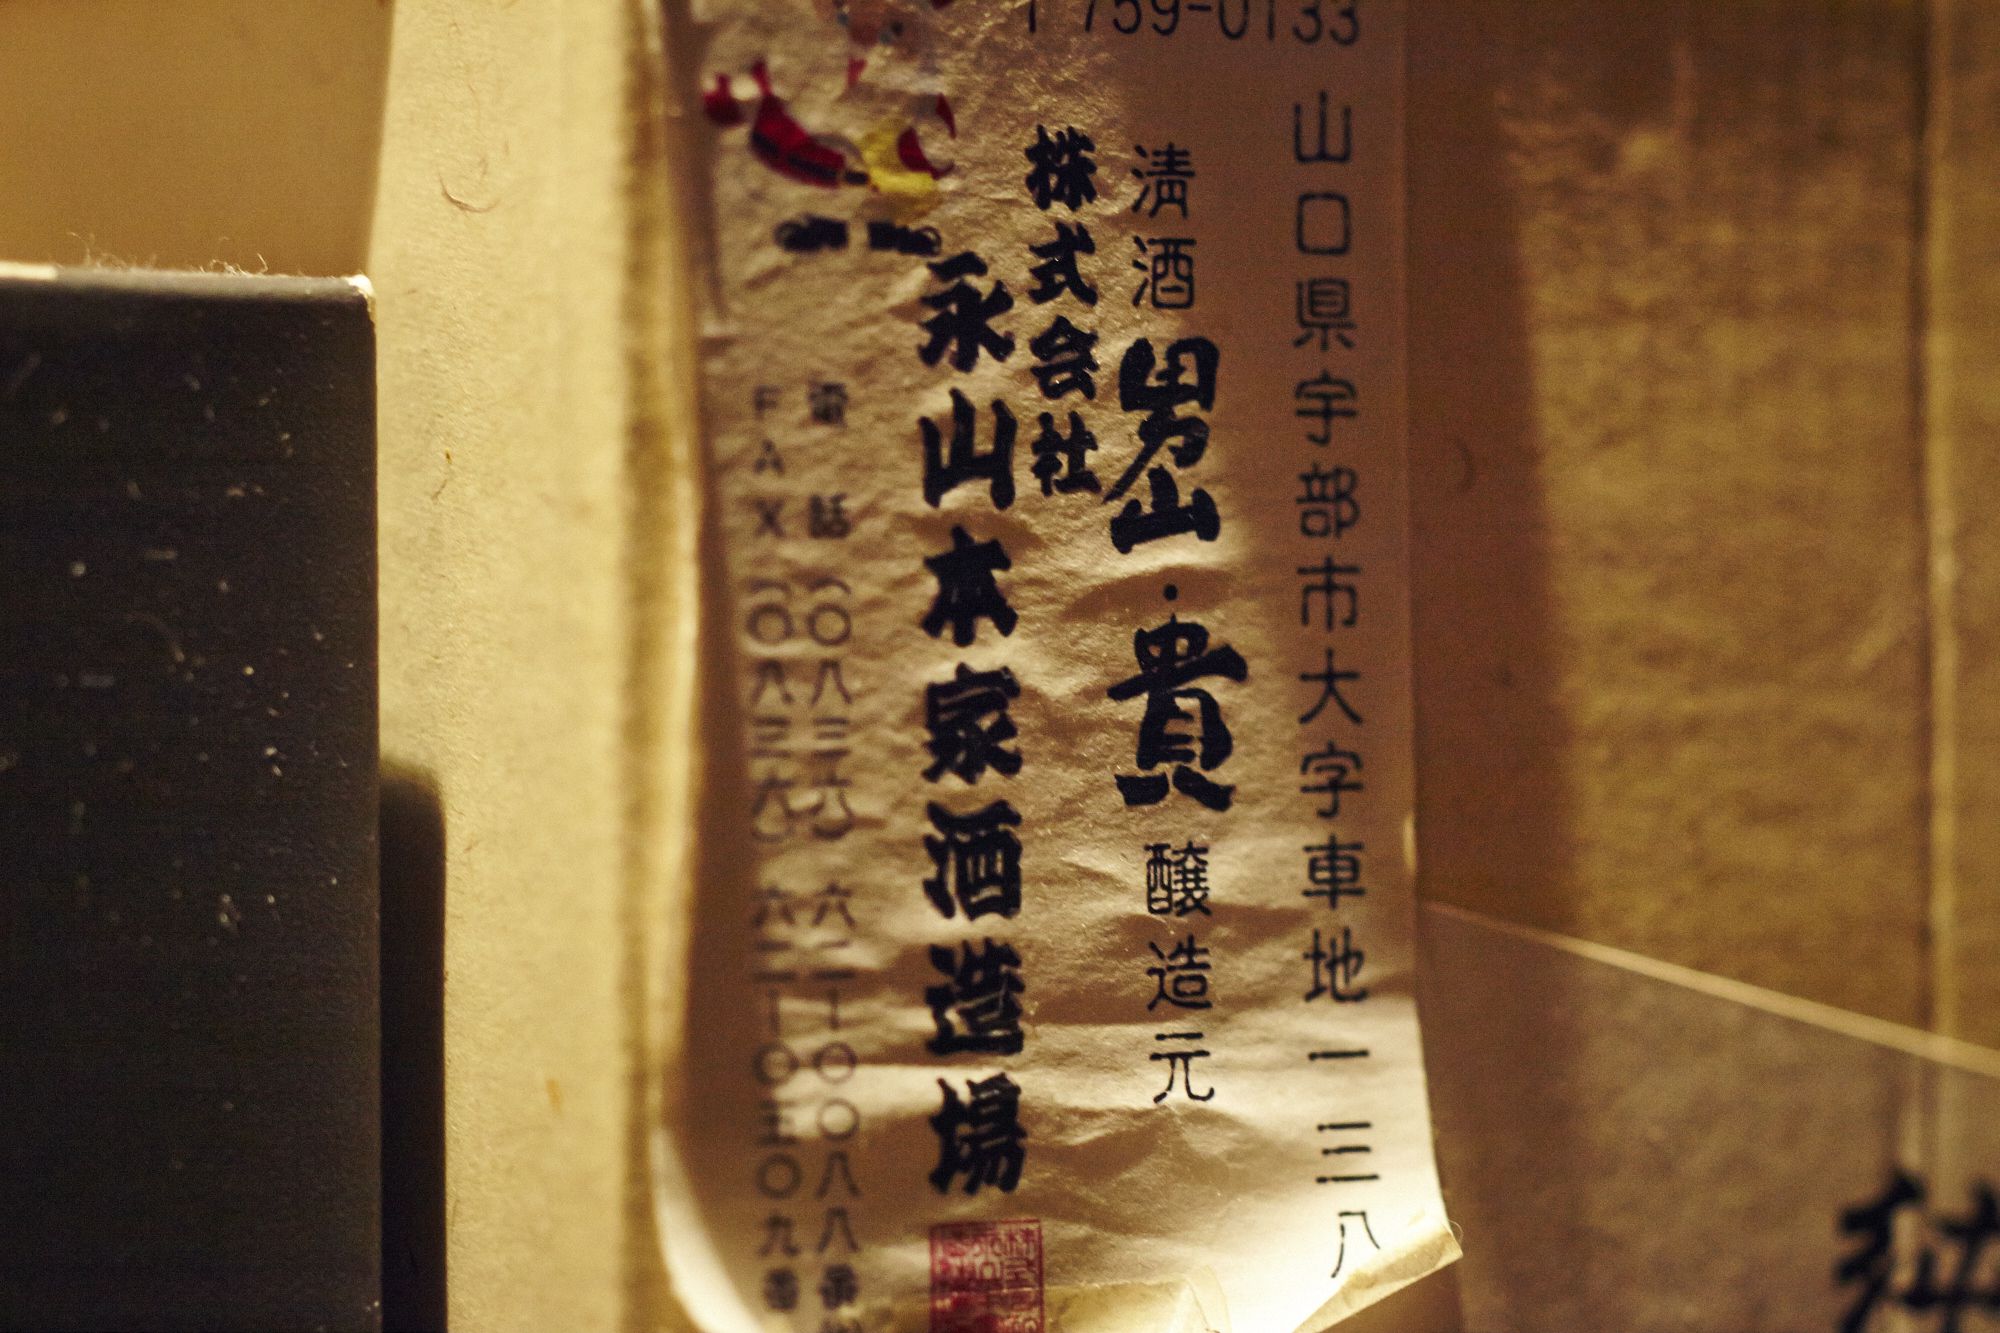 〒759-0133
山口県宇部市大字車地一三八
清酒 男山・貴 醸造元
株式会社
永山本家酒造場
電話(〇八三六)六二-〇〇八八番
FAX(〇八三六)六二-〇三〇九番
純